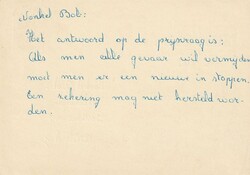 Nonkel Bob:
Het antwoord op de prijsvraag is:
Als men alle gevaar wil vermijden
moet men er een nieuwe in stoppen.
Een zekering mag niet hersteld wor-
den.